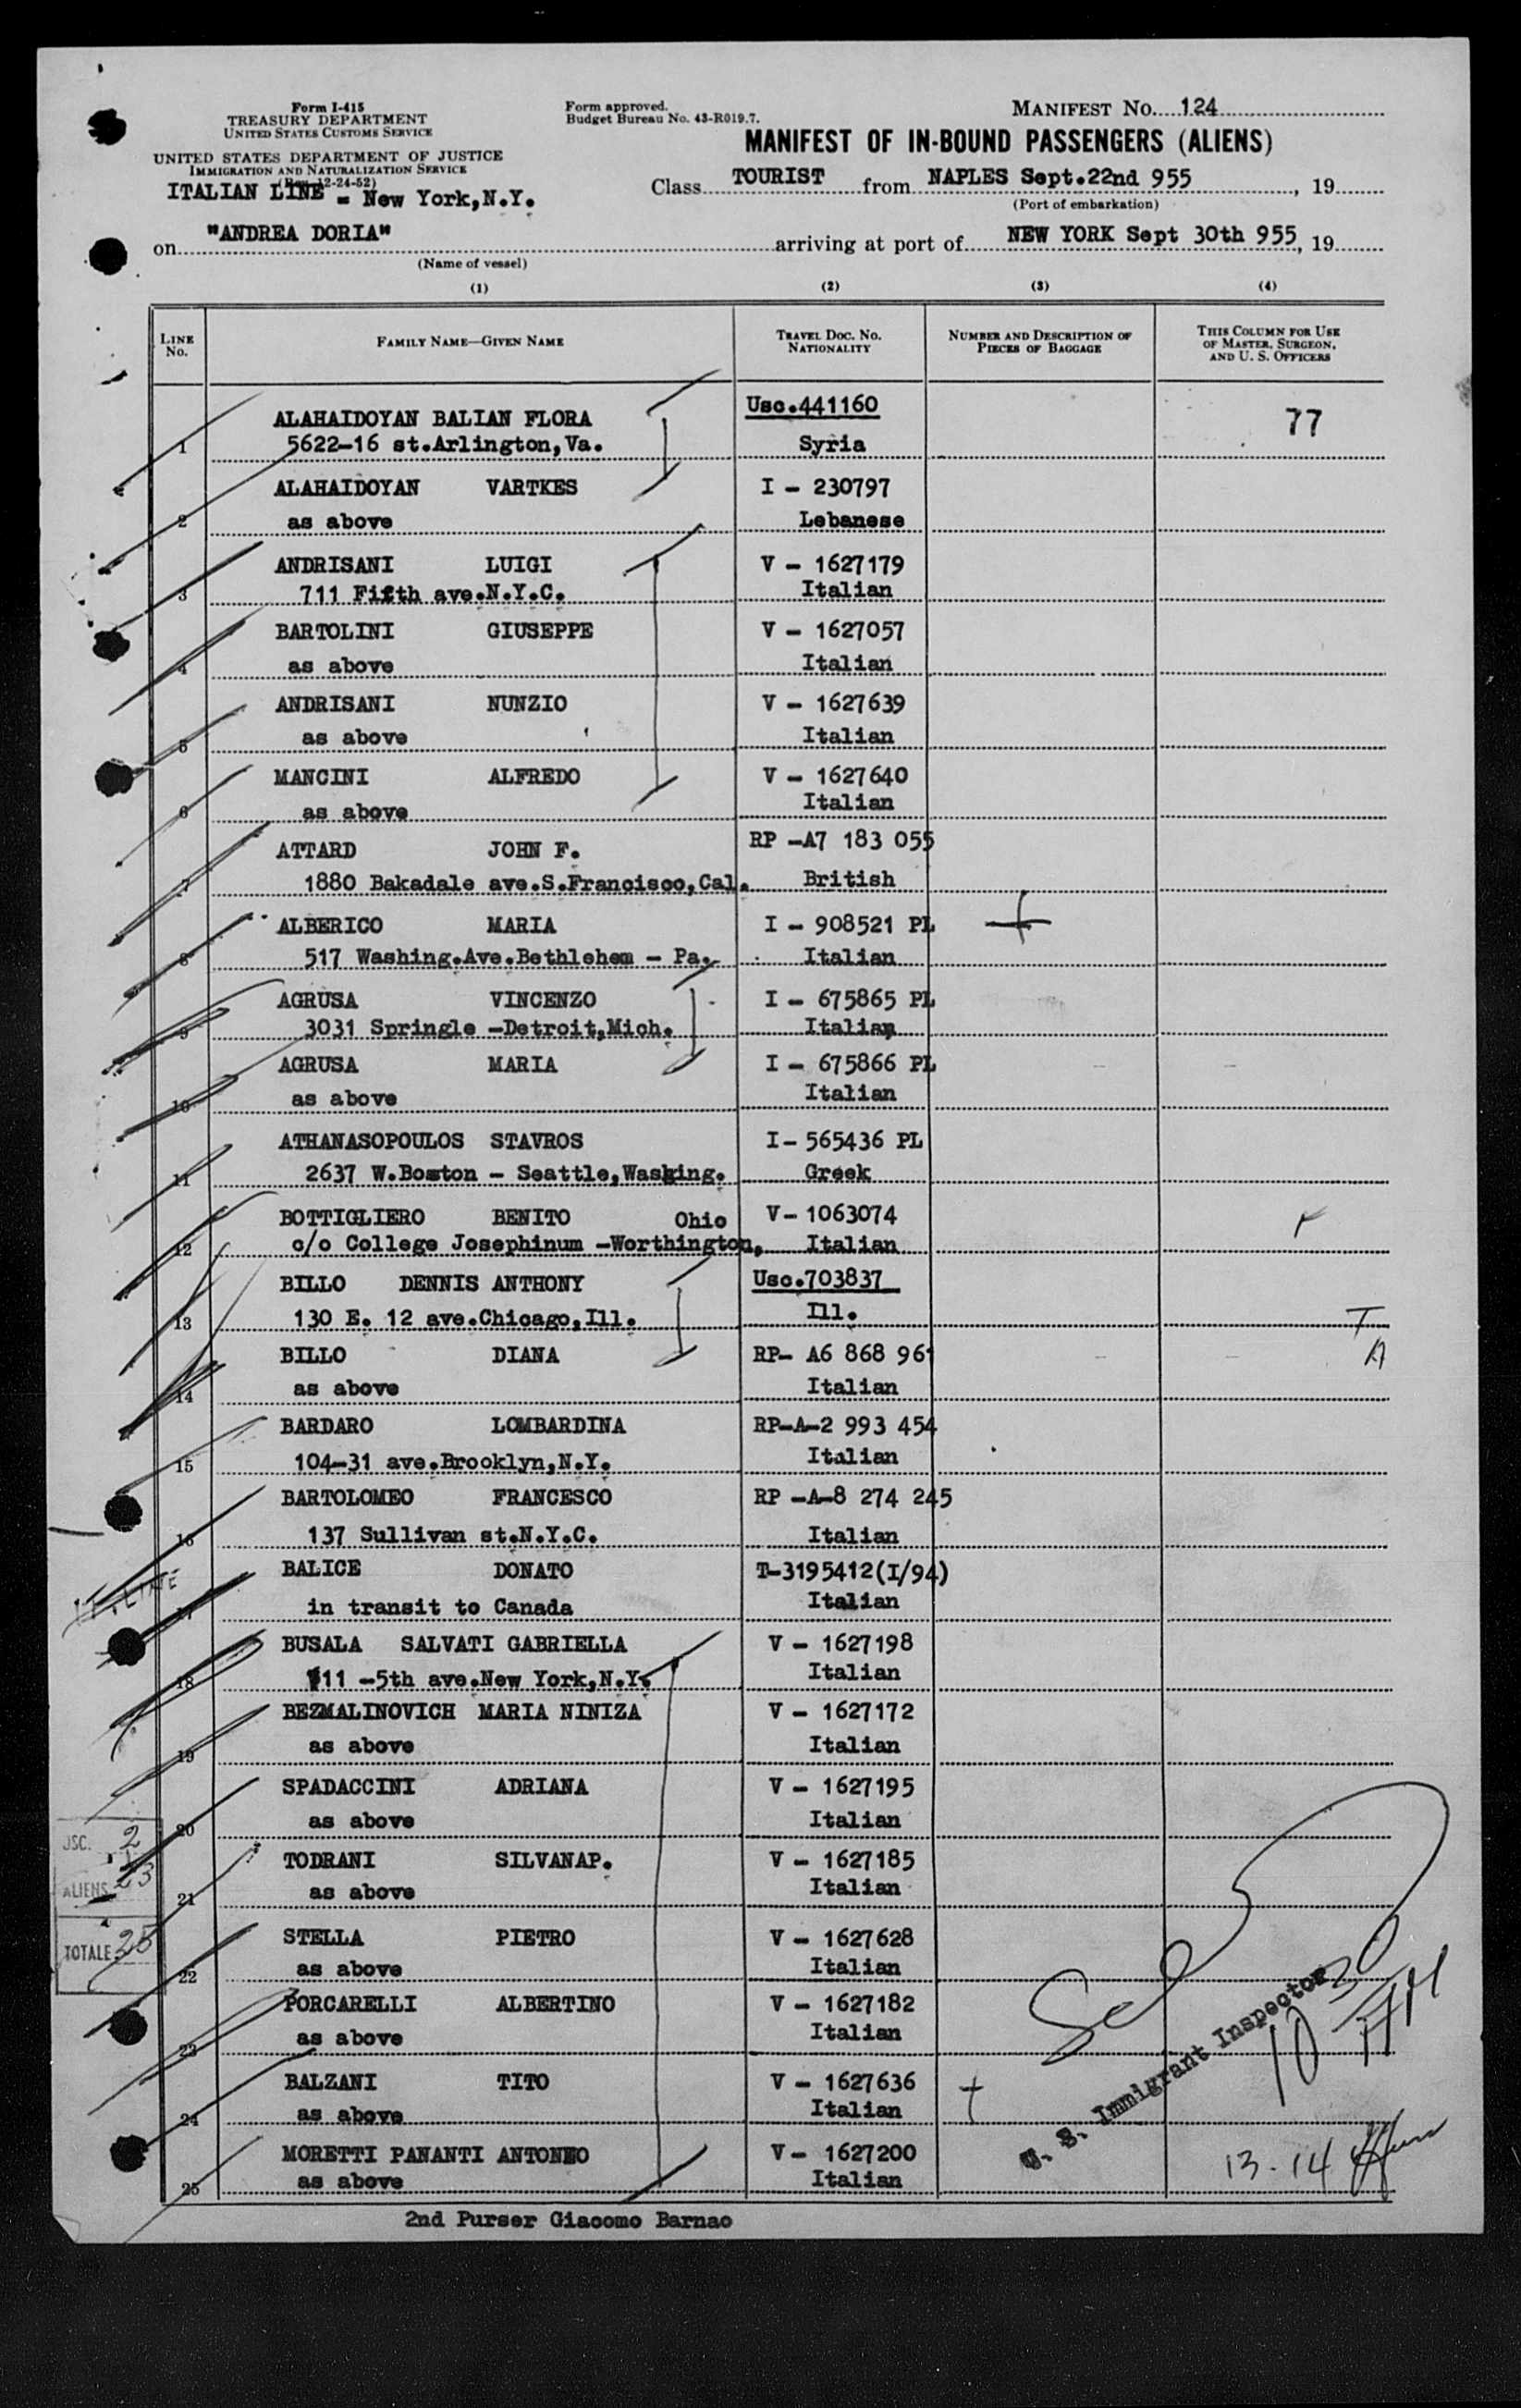 Form I-415
TREASURY DEPARTMENT
UNITED STATES CUSTOMS SERVICE
UNITED STATES DEPARTMENT OF JUSTICE
IMMIGRATION AND NATURALIZATION SERVICE
(Rev. 12-24-52)
ITALIAN LINE = New York,N.Y.
Form approved.
Budget Bureau No. 43-R019.7.
MANIFEST No. 124
MANIFEST OF IN-BOUND PASSENGERS (ALIENS)
Class TOURIST from NAPLES Sept.22nd 955, 19
(Port of embarkation)
on "ANDREA DORIA" arriving at port of NEW YORK Sept 30th 955, 19
(Name of vessel)
(1) (2) (3) (4)
LINE No. FAMILY NAME—GIVEN NAME TRAVEL DOC. NO. NATIONALITY NUMBER AND DESCRIPTION OF PIECES OF BAGGAGE THIS COLUMN FOR USE OF MASTER, SURGEON, AND U. S. OFFICERS
ALAHAIDOYAN BALIAN FLORA Usc.441160 77
1 5622-16 st.Arlington,Va. Syria
ALAHAIDOYAN VARTKES I - 230797
2 as above Lebanese
ANDRISANI LUIGI V - 1627179
3 711 Fifth ave.N.Y.C. Italian
BARTOLINI GIUSEPPE V - 1627057
4 as above Italian
ANDRISANI NUNZIO V - 1627639
5 as above Italian
MANCINI ALFREDO V - 1627640
6 as above Italian
ATTARD JOHN F. RP -A7 183 055
7 1880 Bakadale ave.S.Francisco,Cal. British
ALBERICO MARIA I - 908521 PL
8 517 Washing.Ave.Bethlehem - Pa. Italian
AGRUSA VINCENZO I - 675865 PL
9 3031 Springle -Detroit,Mich. Italian
AGRUSA MARIA I - 675866 PL
10 as above Italian
ATHANASOPOULOS STAVROS I- 565436 PL
11 2637 W.Boston - Seattle,Washing. Greek
BOTTIGLIERO BENITO Ohio V- 1063074
12 c/o College Josephinum -Worthington, Italian
BILLO DENNIS ANTHONY Usc.703837
13 130 E. 12 ave.Chicago,Ill. Ill. T
BILLO DIANA RP- A6 868 961 A
14 as above Italian
BARDARO LOMBARDINA RP-A-2 993 454
15 104-31 ave.Brooklyn,N.Y. Italian
BARTOLOMEO FRANCESCO RP -A-8 274 245
16 137 Sullivan st.N.Y.C. Italian
BALICE DONATO T-3195412(I/94)
17 in transit to Canada Italian
BUSALA SALVATI GABRIELLA V - 1627198
18 711 -5th ave.New York,N.Y. Italian
BEZMALINOVICH MARIA NINIZA V - 1627172
19 as above Italian
SPADACCINI ADRIANA V - 1627195
20 as above Italian
USC. 2
TODRANI SILVANAP. V - 1627185
ALIENS 23
21 as above Italian
STELLA PIETRO V - 1627628
TOTALE 25
22 as above Italian
PORCARELLI ALBERTINO V - 1627182
23 as above Italian
BALZANI TITO V - 1627636
24 as above Italian
U. S. Immigrant Inspector
10 30 AM
MORETTI PANANTI ANTONEO V - 1627200
25 as above Italian
13-14
2nd Purser Giacomo Barnao